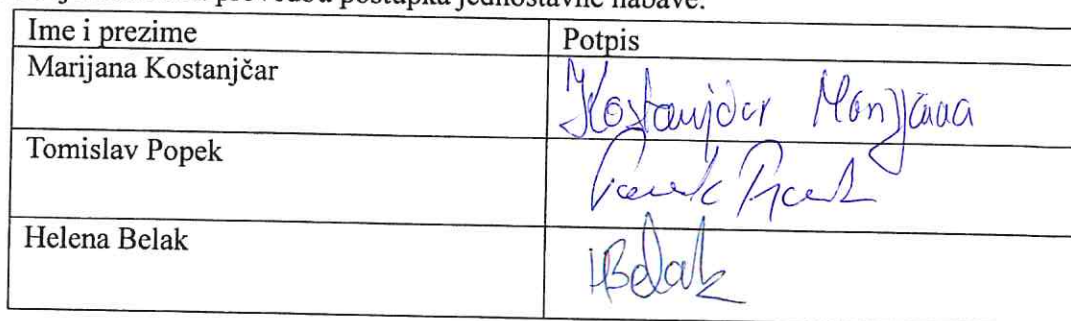 provedbu postupka jednostavne nabave:
Ime i prezime Potpis
Marijana Kostanjčar Kostanjčar Marijana
Tomislav Popek
Helena Belak HBelak